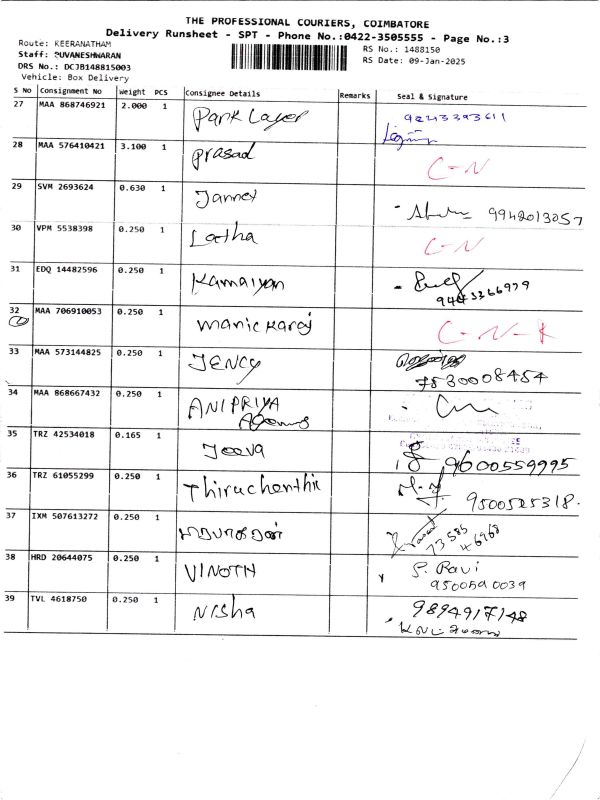 THE PROFESSIONAL COURIERS, COIMBATORE
Delivery Runsheet - SPT - Phone No.:0422-3505555 - Page No.:3
Route: KEERANATHAM
RS No.: 1488150
Staff: BUVANESHWARAN
RS Date: 09-Jan-2025
DRS No.: DCJB148815003
Vehicle: Box Delivery
S No Consignment No Weight PCS Consignee Details Remarks Seal & Signature
27 MAA 868746921 2.000 1 Park Layer 9243393611
28 MAA 576410421 3.100 1 prasad C-N
29 SVM 2693624 0.630 1 Jannet 9942013057
30 VPM 5538398 0.250 1 Latha C-N
31 EDQ 14482596 0.250 1 Kamaiyan 9443366979
32 MAA 706910053 0.250 1 manickaraj C-N-R
33 MAA 573144825 0.250 1 JENCY 7530008454
34 MAA 868667432 0.250 1 ANIPRIYA
35 TRZ 42534018 0.165 1 Jeeva 9600559995
36 TRZ 61055299 0.250 1 Thiruchenthil 9500525318.
37 IXM 507613272 0.250 1 Prasad 73585 46968
38 HRD 20644075 0.250 1 VINOTH S. Ravi
9500590039
39 TVL 4618750 0.250 1 Nisha 9894917148